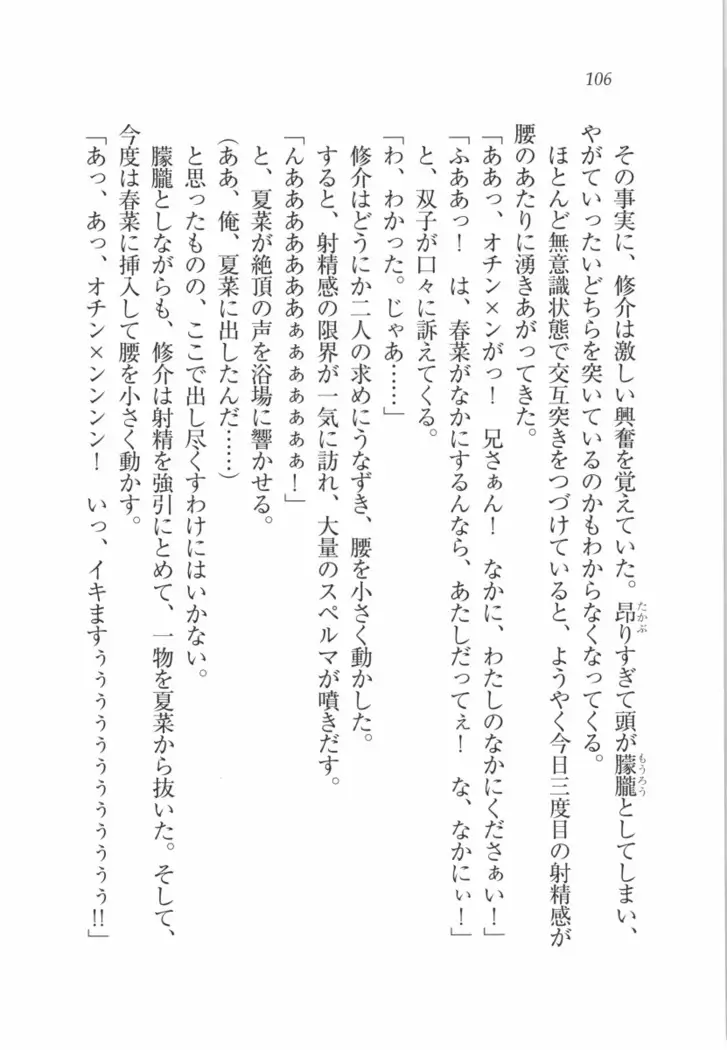 106
その事実に、修介は激しい興奮を覚えていた。昂りすぎて頭が朦朧としてしまい、
やがていったいどちらを突いているのかもわからなくなってくる。
ほとんど無意識状態で交互突きをつづけていると、ようやく今日三度目の射精感が
腰のあたりに湧きあがってきた。
「ああっ、オチン×ンがっ！　兄さぁん！　なかに、わたしのなかにくださぁい！」
「ふああっ！　は、春菜がなかにするんなら、あたしだってぇ！　な、なかにぃ！」
と、双子が口々に訴えてくる。
「わ、わかった。じゃあ……」
修介はどうにか二人の求めにうなずき、腰を小さく動かした。
すると、射精感の限界が一気に訪れ、大量のスペルマが噴きだす。
「んああああああああぁぁぁぁぁぁぁ！」
と、夏菜が絶頂の声を浴場に響かせる。
（ああ、俺、夏菜に出したんだ……）
と思ったものの、ここで出し尽くすわけにはいかない。
朦朧としながらも、修介は射精を強引にとめて、一物を夏菜から抜いた。そして、
今度は春菜に挿入して腰を小さく動かす。
「あっ、あっ、オチン×ンンンン！　いっ、イキますぅぅぅぅぅぅぅぅぅぅぅ!!」